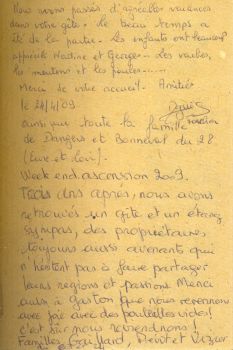 Nous avons passés d'agréables vacances
dans votre gîte. Le beau temps a
été de la partie. Les enfants ont beaucoup
apprécié Nadine et George.. Les vaches,
les moutons et les poules......
Merci de votre accueil. Amitiés
le 24/4/09
ainsi que toute la famille
de Dangers et Bonneval du 28
(Eure et Loir).
Week end ascension 2009.
Trois ans après, nous avons
retrouvés un gîte et un étang
sympas, des propriétaires
toujours aussi avenants qui
n'hésitent pas à faire partager
leurs régions et passions. Merci
aussi à Gaston que nous reverrons
avec joie avec des bouteilles vides!
c'est sûr nous reviendrons!
Familles, et